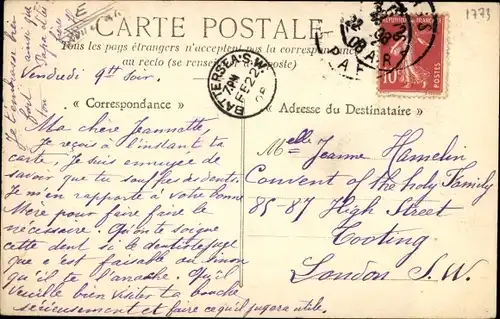 1773
CARTE POSTALE
Tous les pays étrangers n'acceptent pas la correspondance
au recto (se renseigner à la poste)
Vendredi 9h Soir.
BATTERSEA. S.W.
FE 22
08
10
POSTES
« Correspondance »
Ma chère Jeannette,
Je reçois à l'instant ta
carte. Je suis ennuyée de
savoir que tu souffres des dents.
Je m'en rapporte à votre bonne
Mère pour faire faire le
nécessaire. Qu'on te soigne
cette dent si le dentiste juge
que c'est faisable ou sinon
qu'il te l'arrache. Qu'il
veuille bien visiter ta bouche
sérieusement et faire ce qu'il jugera utile.
Je t'embrasse bien
fort ainsi que
« Adresse du Destinataire »
Melle Jeanne Hamelin
Convent of the holy Family
85-87 High Street
Tooting
London S.W.